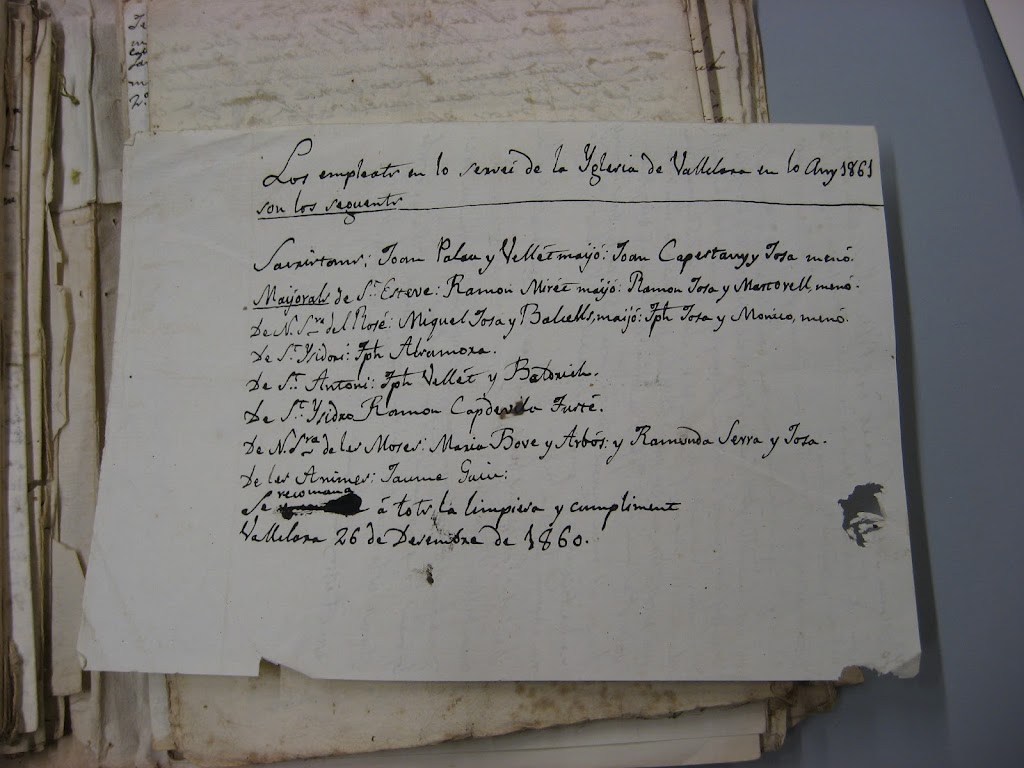 Los empleats en lo servei de la Yglesia de Vallclara en lo Any 1861
son los seguents
Sacristans: Joan Palau y Vellét maijó: Joan Capestany y Tosa menó.
Maijorals de St. Esteve: Ramon Mirét maijó: Ramon Tosa y Martorell, menó.
De N. Sra. del Rosé: Miguel Tosa y Balcells, maijó: Jph Tosa y Monico, menó.
De St. Ysidori: Jph Alvamora.
De St. Antoni: Jph Vellét y
De St. Ysidro Ramon Capdevila Fusté.
De N. Sra. de les Moses: Maria Bove y Arbós: y Ramonda Serra y Tosa.
De les Animes: Jaume
Se recomana á tots, la limpiesa y cumpliment
Vallclara 26 de Desembre de 1860.